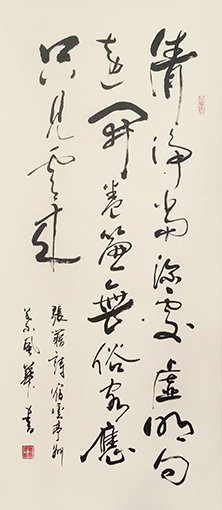 清淨當深處虛明向
遠開卷簾無俗客應
只見雲來
張籍詩宿雲亭
書